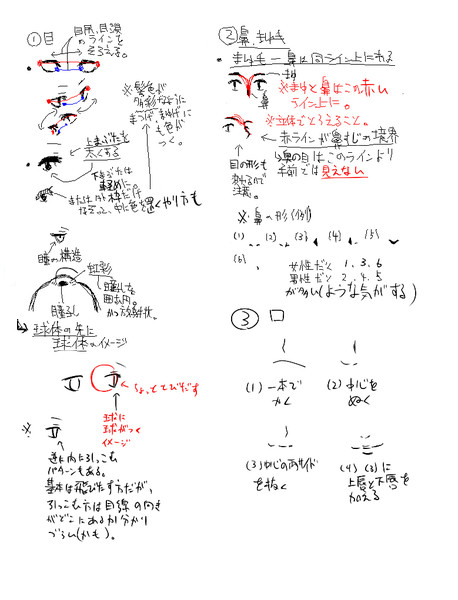 ①目
目尻、目頭
のラインを
そろえる。
※髪色が
多彩なように
まつげ、まゆげに
も色が
つく。
上まぶたを
太くする
下まぶたは
または外枠だけ
なぞって、中に色を置くやり方も
瞳の構造
虹彩
瞳孔を
囲む円。
かつ放射状。
瞳孔
↳球体の先に
球体のイメージ
ちょっとでっぱらす
球に
球がつく
イメージ
※
逆に内に引っこむ
パターンもある。
基本は飛びだす方だが、
引っこむ方は目線の向き
がどこにあるか分かり
づらい(かも)。
②鼻、まゆ毛
・まゆ毛ー鼻は同ライン上にある
まゆ
鼻
※まゆと鼻はこの赤い
ライン上に。
※立体でとらえること。
赤ラインが鼻すじの境界
奥の目はこのラインより
手前では見えない
目の形も
変わるので
注意。
※鼻の形(例)
(1) (2) (3) (4) (5)
(6)
女性だと 1、3、6
男性だと 2、4、5
が多い(ような気がする)
③口
(1)一本で
かく
(2)中心を
ぬく
(3)かじの両サイド
を抜く
(4)(3)に
上唇と下唇を
加える